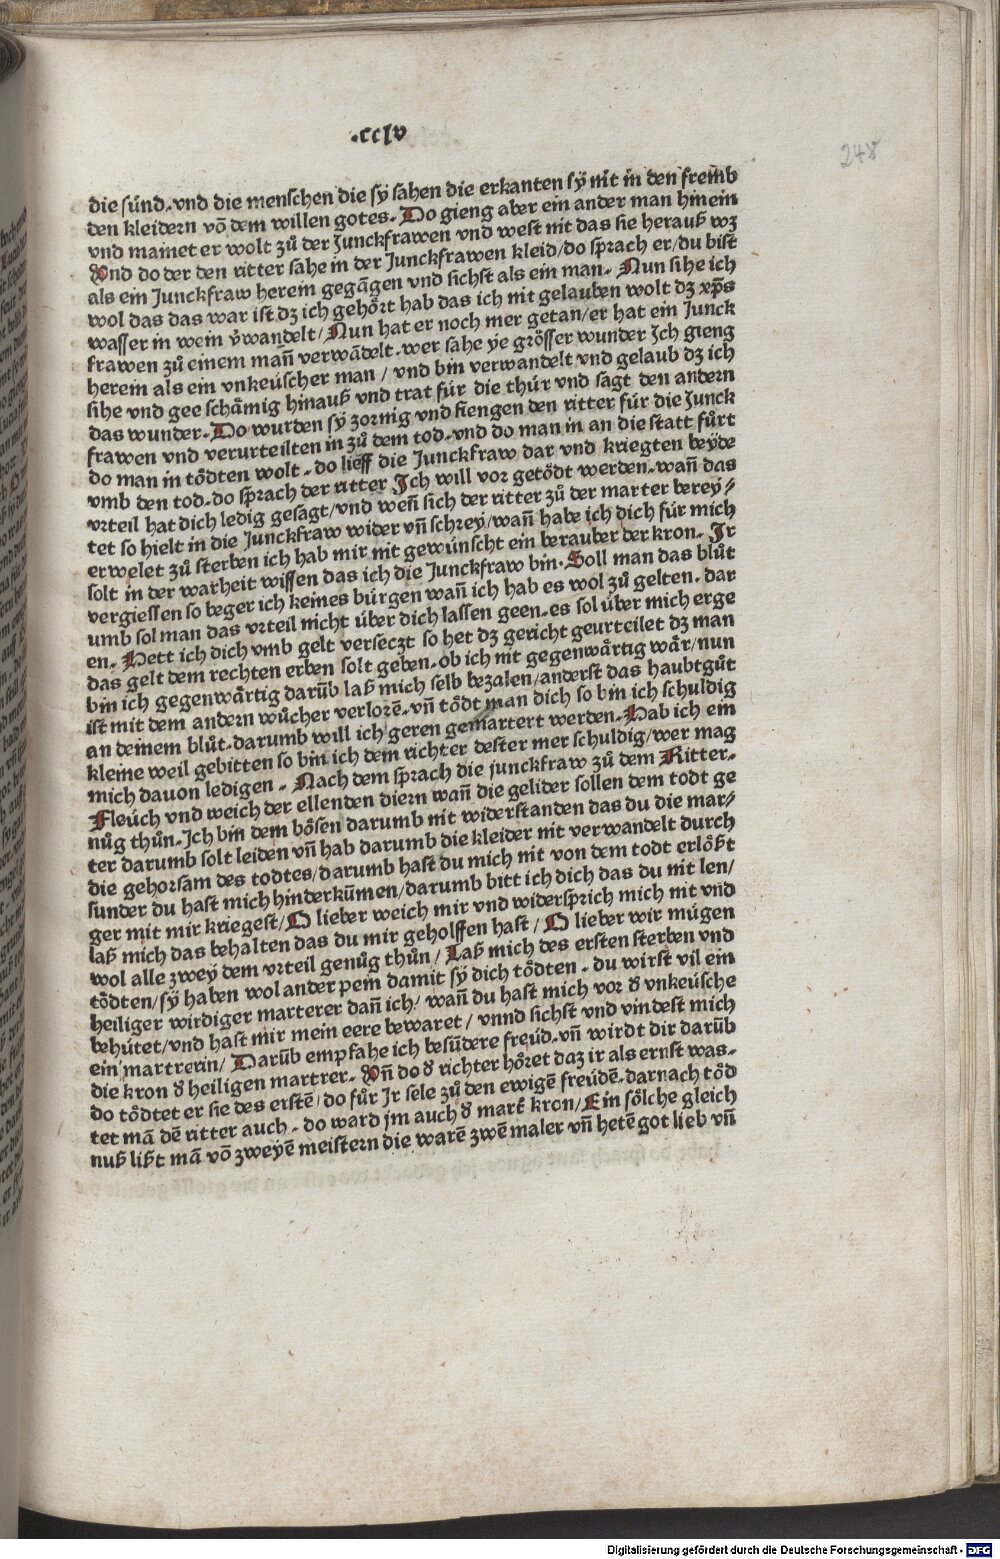 .cclv
248
die sünd.vnd die menschen die sÿ sahen die erkanten sÿ nit in den fremb
den kleidern võ dem willen gotes. Do gieng aber ein ander man hinein
vnd mainet er wolt zů der Junckfrawen vnd west nit das sie herauß wz
Vnd do der den ritter sahe in der Junckfrawen kleid/do sprach er/du bist
als ein Junckfraw herein gegãgen vnd sichst als ein man. Nun sihe ich
wol das das war ist dz ich gehört hab das ich nit gelauben wolt dz xp̃s
wasser in wein v̾wandelt/Nun hat er noch mer getan/er hat ein Junck
frawen zů einem mañ verwãdelt.wer sahe ye grösser wunder Jch gieng
herein als ein vnkeüscher man / vnd bin verwandelt vnd gelaub dz ich
sihe vnd gee schämig hinauß vnd trat für die thür vnd sagt den andern
das wunder.Do wurden sÿ zornig vnd fiengen den ritter für die Junck
frawen vnd verurteilten in zů dem tod.vnd do man in an die statt fürt
do man in tödten wolt.do lieff die Junckfraw dar vnd kriegten beÿde
vmb den tod.do sprach der ritter Jch will vor getödt werden.wañ das
vrteil hat dich ledig gesagt/vnd weñ sich der ritter zů der marter bereÿ/
tet so hielt in die Junckfraw wider vñ schreÿ/wañ habe ich dich für mich
erwelet zů sterben ich hab mir nit gewünscht ein berauber der kron. Jr
solt in der warheit wissen das ich die Junckfraw bin.Soll man das blůt
vergiessen so beger ich keines bürgen wañ ich hab es wol zů gelten.dar
umb sol man das vrteil nicht über dich lassen geen.es sol über mich erge
en. Hett ich dich vmb gelt verseczt so het dz gericht geurteilet dz man
das gelt dem rechten erben solt geben.ob ich nit gegenwärtig wär/nun
bin ich gegenwärtig darüb laß mich selb bezalen/anderst das haubtgůt
ist mit dem andern wůcher verlorẽ.vñ tödt man dich so bin ich schuldig
an deinem blůt.darumb will ich geren gemartert werden.Hab ich ein
kleine weil gebitten so bin ich dem richter dester mer schuldig/wer mag
mich dauon ledigen . Nach dem sprach die junckfraw zů dem Ritter.
Fleüch vnd weich der ellenden diern wañ die gelider sollen dem todt ge
nůg thůn.Ich bin dem bösen darumb nit widerstanden das du die mar/
ter darumb solt leiden vñ hab darumb die kleider nit verwandelt durch
die gehorsam des todtes/darumb hast du mich nit von dem todt erlößt
sunder du hast mich hinderkũmen/darumb bitt ich dich das du nit len/
ger mit mir kriegest/O lieber weich mir vnd widersprich mich nit vnd
laß mich das behalten das du mir geholffen hast/O lieber wir mügen
wol alle zweÿ dem vrteil genůg thůn/Laß mich des ersten sterben vnd
tödten/sÿ haben wol ander pein damit sÿ dich tödten.du wirst vil ein
heiliger wirdiger marterer dañ ich/wañ du hast mich vor d̾ vnkeüsche
behütet/vnd hast mir mein eere bewaret/vnnd sichst vnd vindest mich
ein martrerin/Darüb empfahe ich besũdere freüd.vñ wirdt dir darüb
die kron d̾ heiligen martrer. Vñ do d̾ richter höret daz ir als ernst was.
do tödtet er sie des erstẽ/do fůr Jr sele zů den ewigẽ freüdẽ.darnach töd
tet mã dẽ ritter auch.do ward jm auch d̾ mart̾ kron/Ein sölche gleich
nuß lißt mã võ zweÿẽ meistern die warẽ zwẽ maler vñ hetẽ got lieb vñ
Digitalisierung gefördert durch die Deutsche Forschungsgemeinschaft - DFG